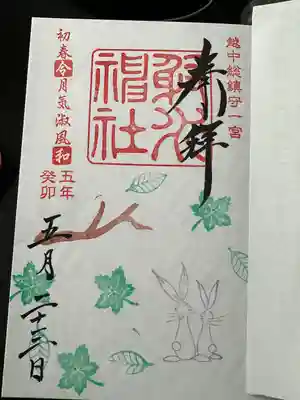 越中総鎮守一宮
奉拝
射水
神社
初春令月気淑風和
五年
癸卯
五月二十三日